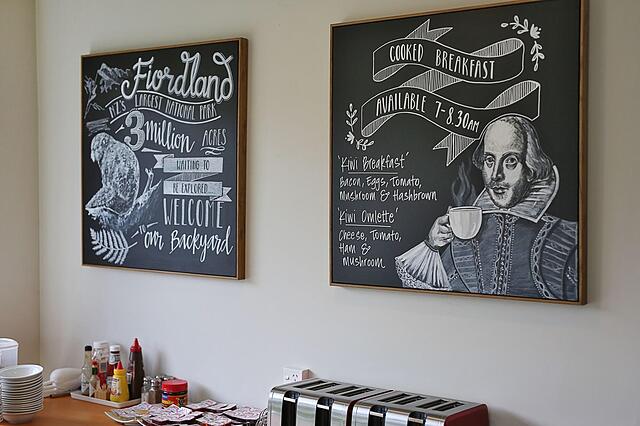 Fiordland
NZ'S LARGEST NATIONAL PARK
3 million
ACRES
WAITING TO
BE EXPLORED...
WELCOME
TO our Backyard
COOKED BREAKFAST
AVAILABLE 7-8.30AM
'Kiwi Breakfast'
Bacon, Eggs, Tomato,
Mushroom & Hashbrown
'Kiwi Omlette'
Cheese, Tomato,
Ham &
Mushroom